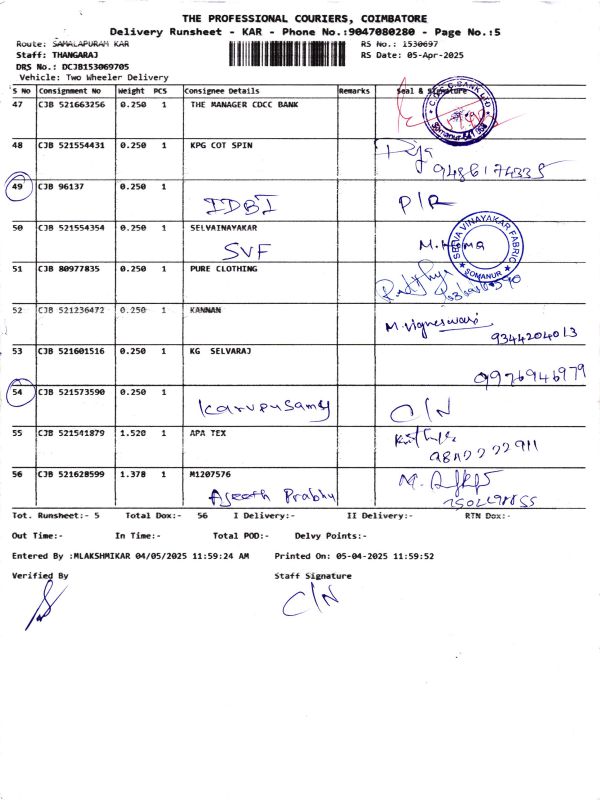 THE PROFESSIONAL COURIERS, COIMBATORE
Delivery Runsheet - KAR - Phone No.:9047080280 - Page No.:5
Route: SAMALAPURAM KAR
RS No.: 1530697
Staff: THANGARAJ
RS Date: 05-Apr-2025
DRS No.: DCJB153069705
Vehicle: Two Wheeler Delivery
S No Consignment No Weight PCS Consignee Details Remarks Seal & Signature
47 CJB 521663256 0.250 1 THE MANAGER CDCC BANK
48 CJB 521554431 0.250 1 KPG COT SPIN
9486174335
49 CJB 96137 0.250 1
IDBI P/R
50 CJB 521554354 0.250 1 SELVAINAYAKAR
SVF
SELVA VINAYAKAR FABRIC
SOMANUR
51 CJB 80977835 0.250 1 PURE CLOTHING
52 CJB 521236472 0.250 1 KANNAN
M.Vigneswari
9344204013
53 CJB 521601516 0.250 1 KG SELVARAJ
9976946979
54 CJB 521573590 0.250 1
Karupusamy C/N
55 CJB 521541879 1.520 1 APA TEX
56 CJB 521628599 1.378 1 M1207576
Ajeeth Prabhu
Tot. Runsheet:- 5 Total Dox:- 56 I Delivery:- II Delivery:- RTN Dox:-
Out Time:- In Time:- Total POD:- Delvy Points:-
Entered By :MLAKSHMIKAR 04/05/2025 11:59:24 AM Printed On: 05-04-2025 11:59:52
Verified By Staff Signature
C/N